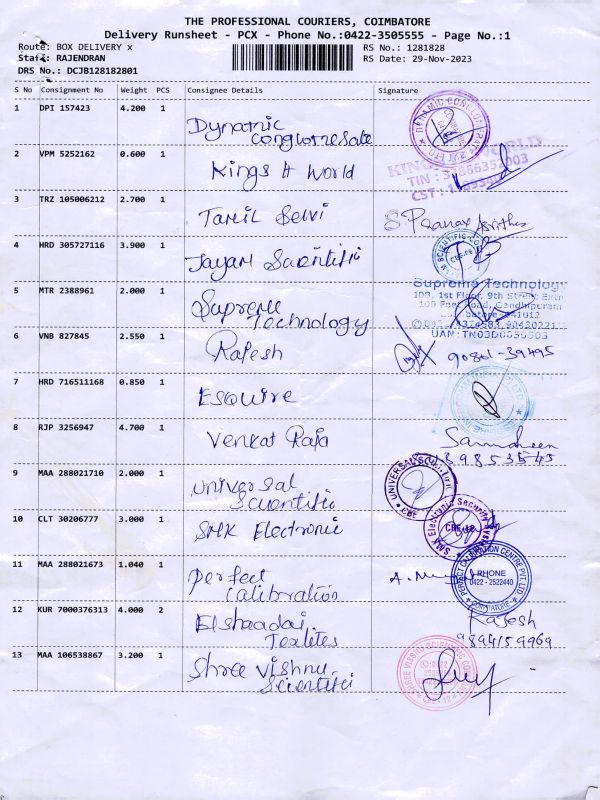 THE PROFESSIONAL COURIERS, COIMBATORE
Delivery Runsheet - PCX - Phone No.:0422-3505555 - Page No.:1
Route: BOX DELIVERY x
RS No.: 1281828
Staff: RAJENDRAN
RS Date: 29-Nov-2023
DRS No.: DCJB128182801
S No Consignment No Weight PCS Consignee Details Signature
1 DPI 157423 4.200 1 Dynamic
Conglomerate
2 VPM 5252162 0.600 1 Kings A World
WORLD
TIN :
CST :
3 TRZ 105006212 2.700 1 Tamil Selvi
4 HRD 305727116 3.900 1 Jayam Scientific
5 MTR 2388961 2.000 1 Supreme
Technology
Supreme Technology
1st Floor, 9th Street
100 Feet Road, Gandhipuram
6 VNB 827845 2.550 1 Rajesh
90861-39495
7 HRD 716511168 0.850 1 Esquire
8 RJP 3256947 4.700 1 Venkat Raja
9 MAA 288021710 2.000 1 Universal
Scientific
UNIVERSAL SCIENTIFIC
CBE
10 CLT 30206777 3.000 1 SMK Electronic
SMK Electronic Security
11 MAA 288021673 1.040 1 Perfect
Calibration
PERFECT CALIBRATION CENTRE PVT. LTD.
PHONE
0422 - 2522440
COIMBATORE
12 KUR 7000376313 4.000 2 Elshaadai
Textiles
Rajesh
9894159969
13 MAA 106538867 3.200 1 Shree Vishnu
Scientific